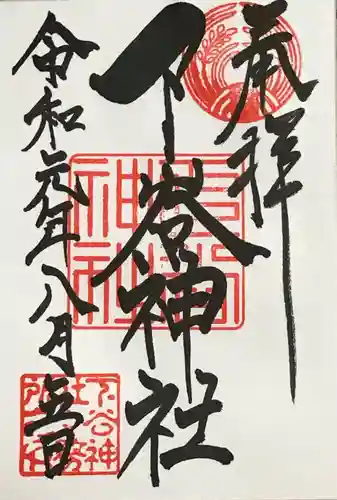 奉拝
下谷神社
令和元年八月五日
下谷神社
下谷神
社務
所印